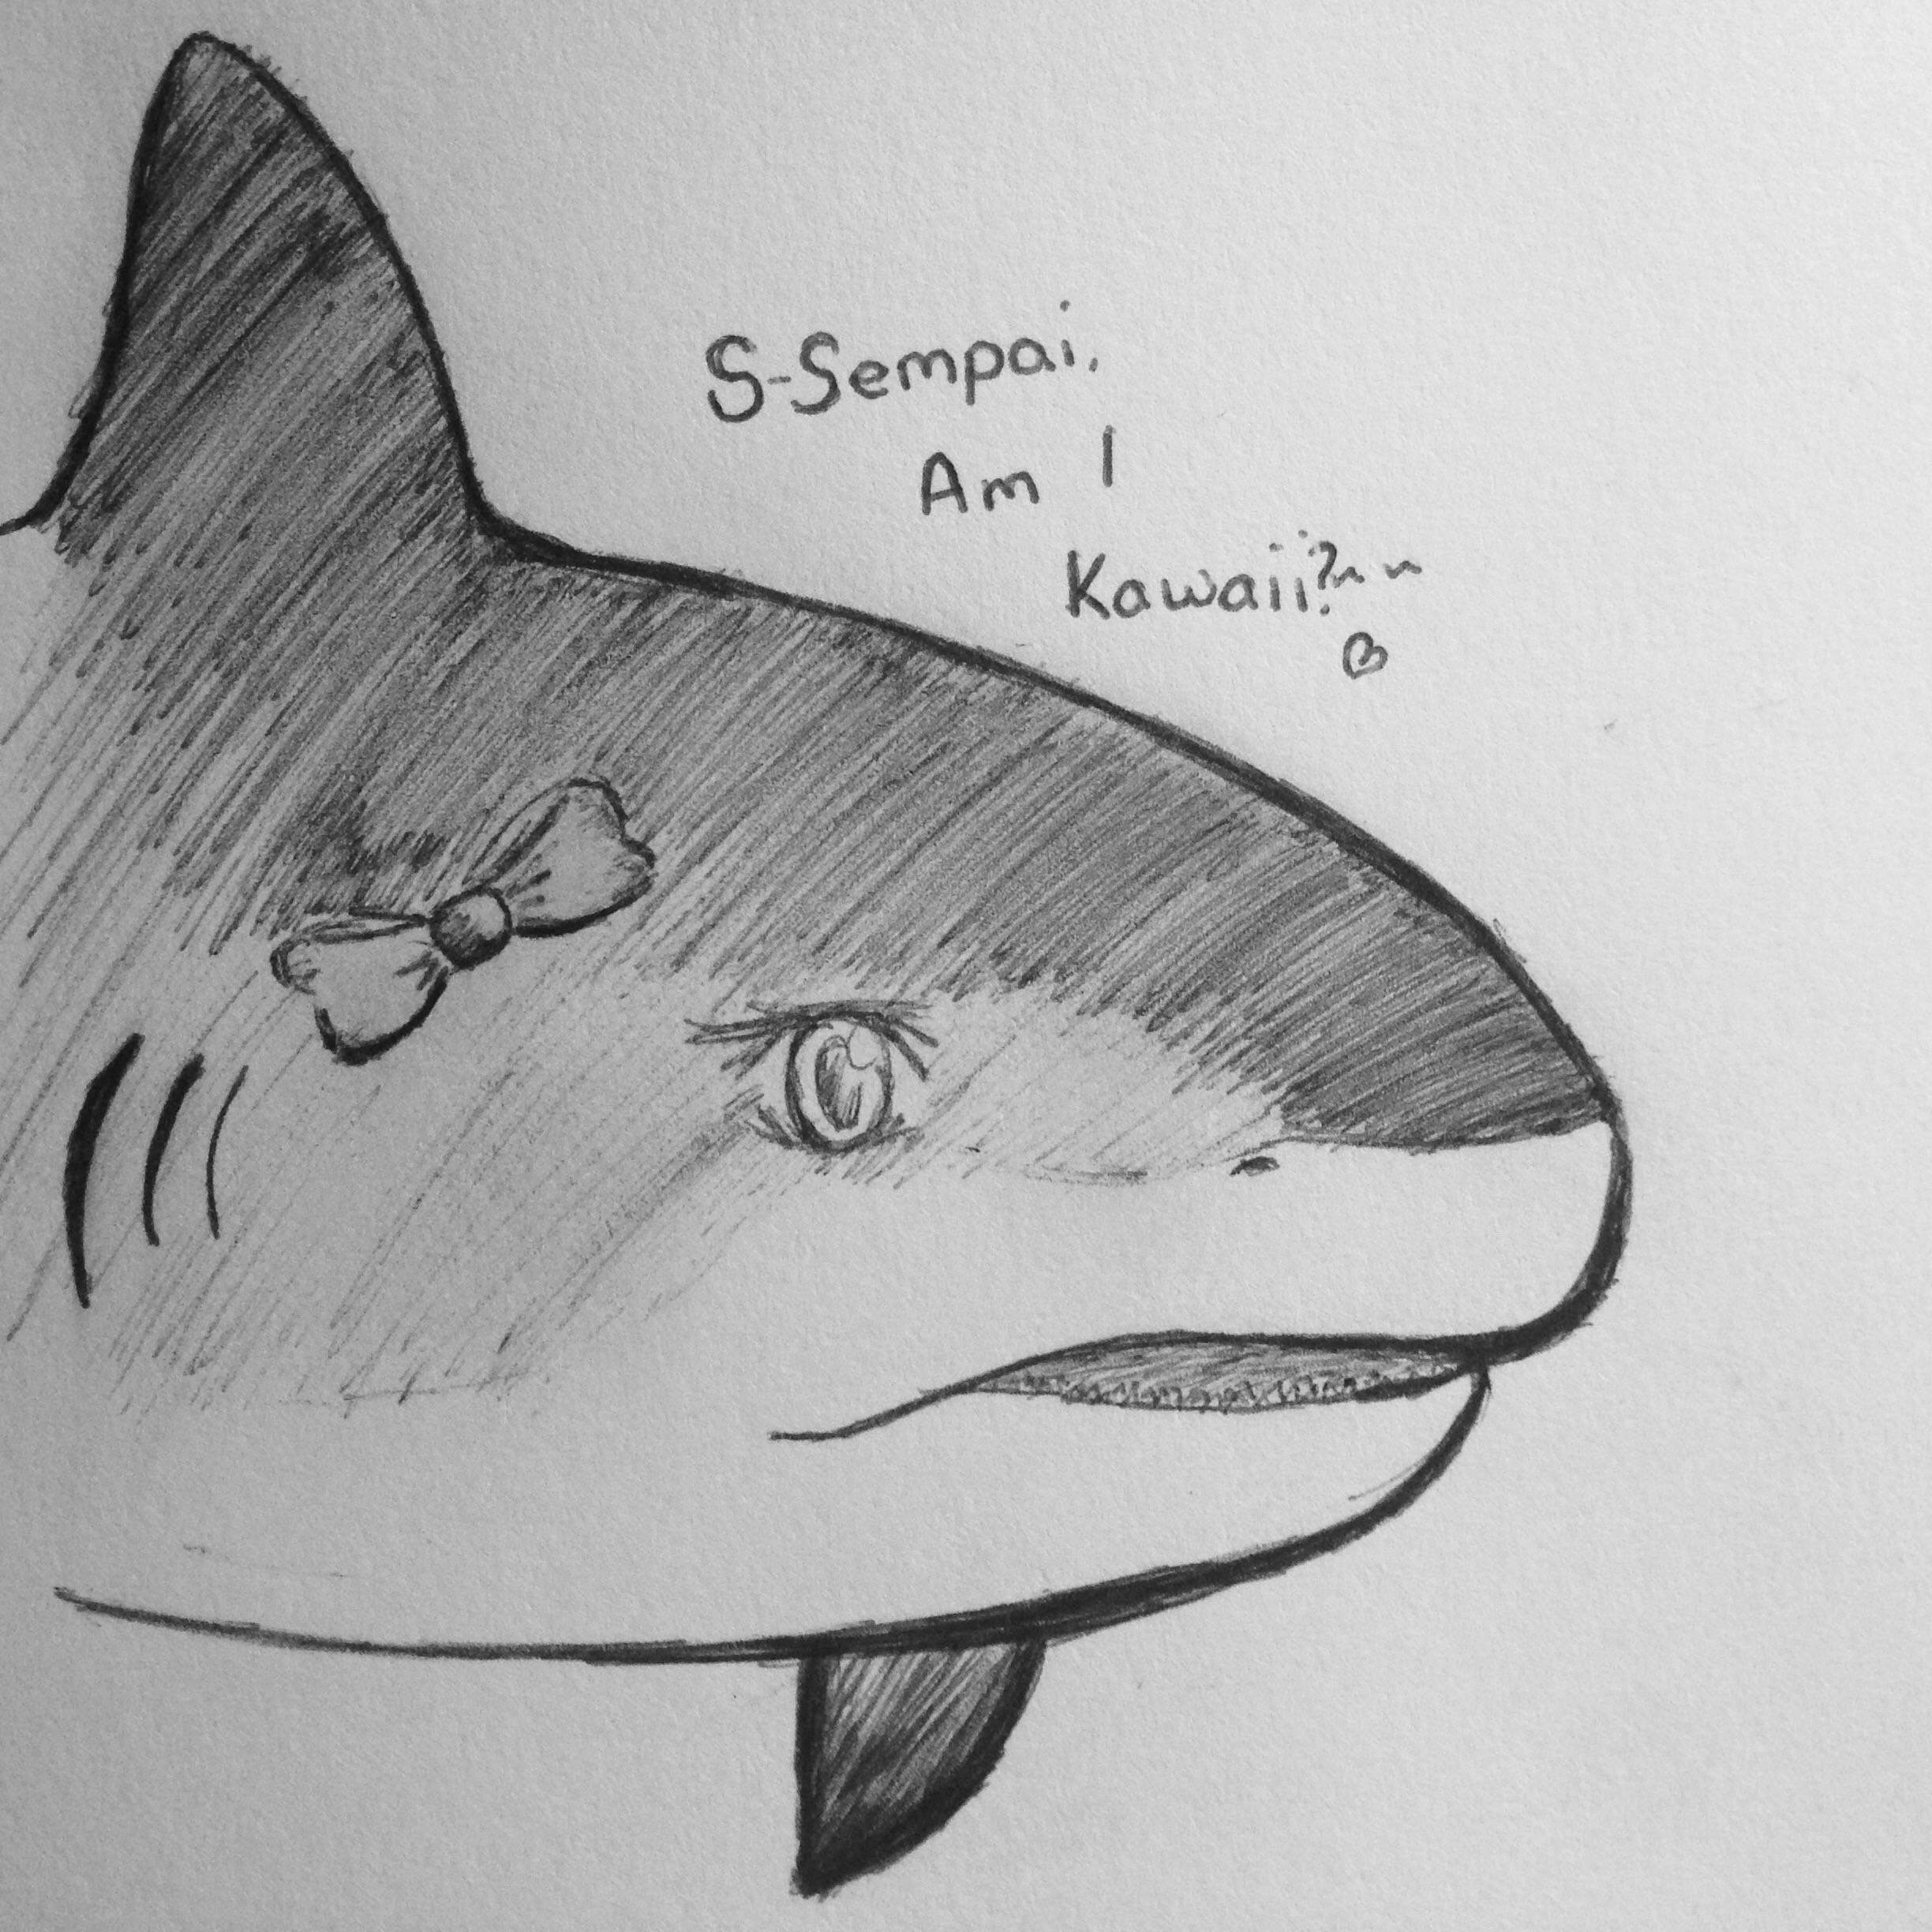 S-Sempai.
Am I
Kawaii?~~
♡